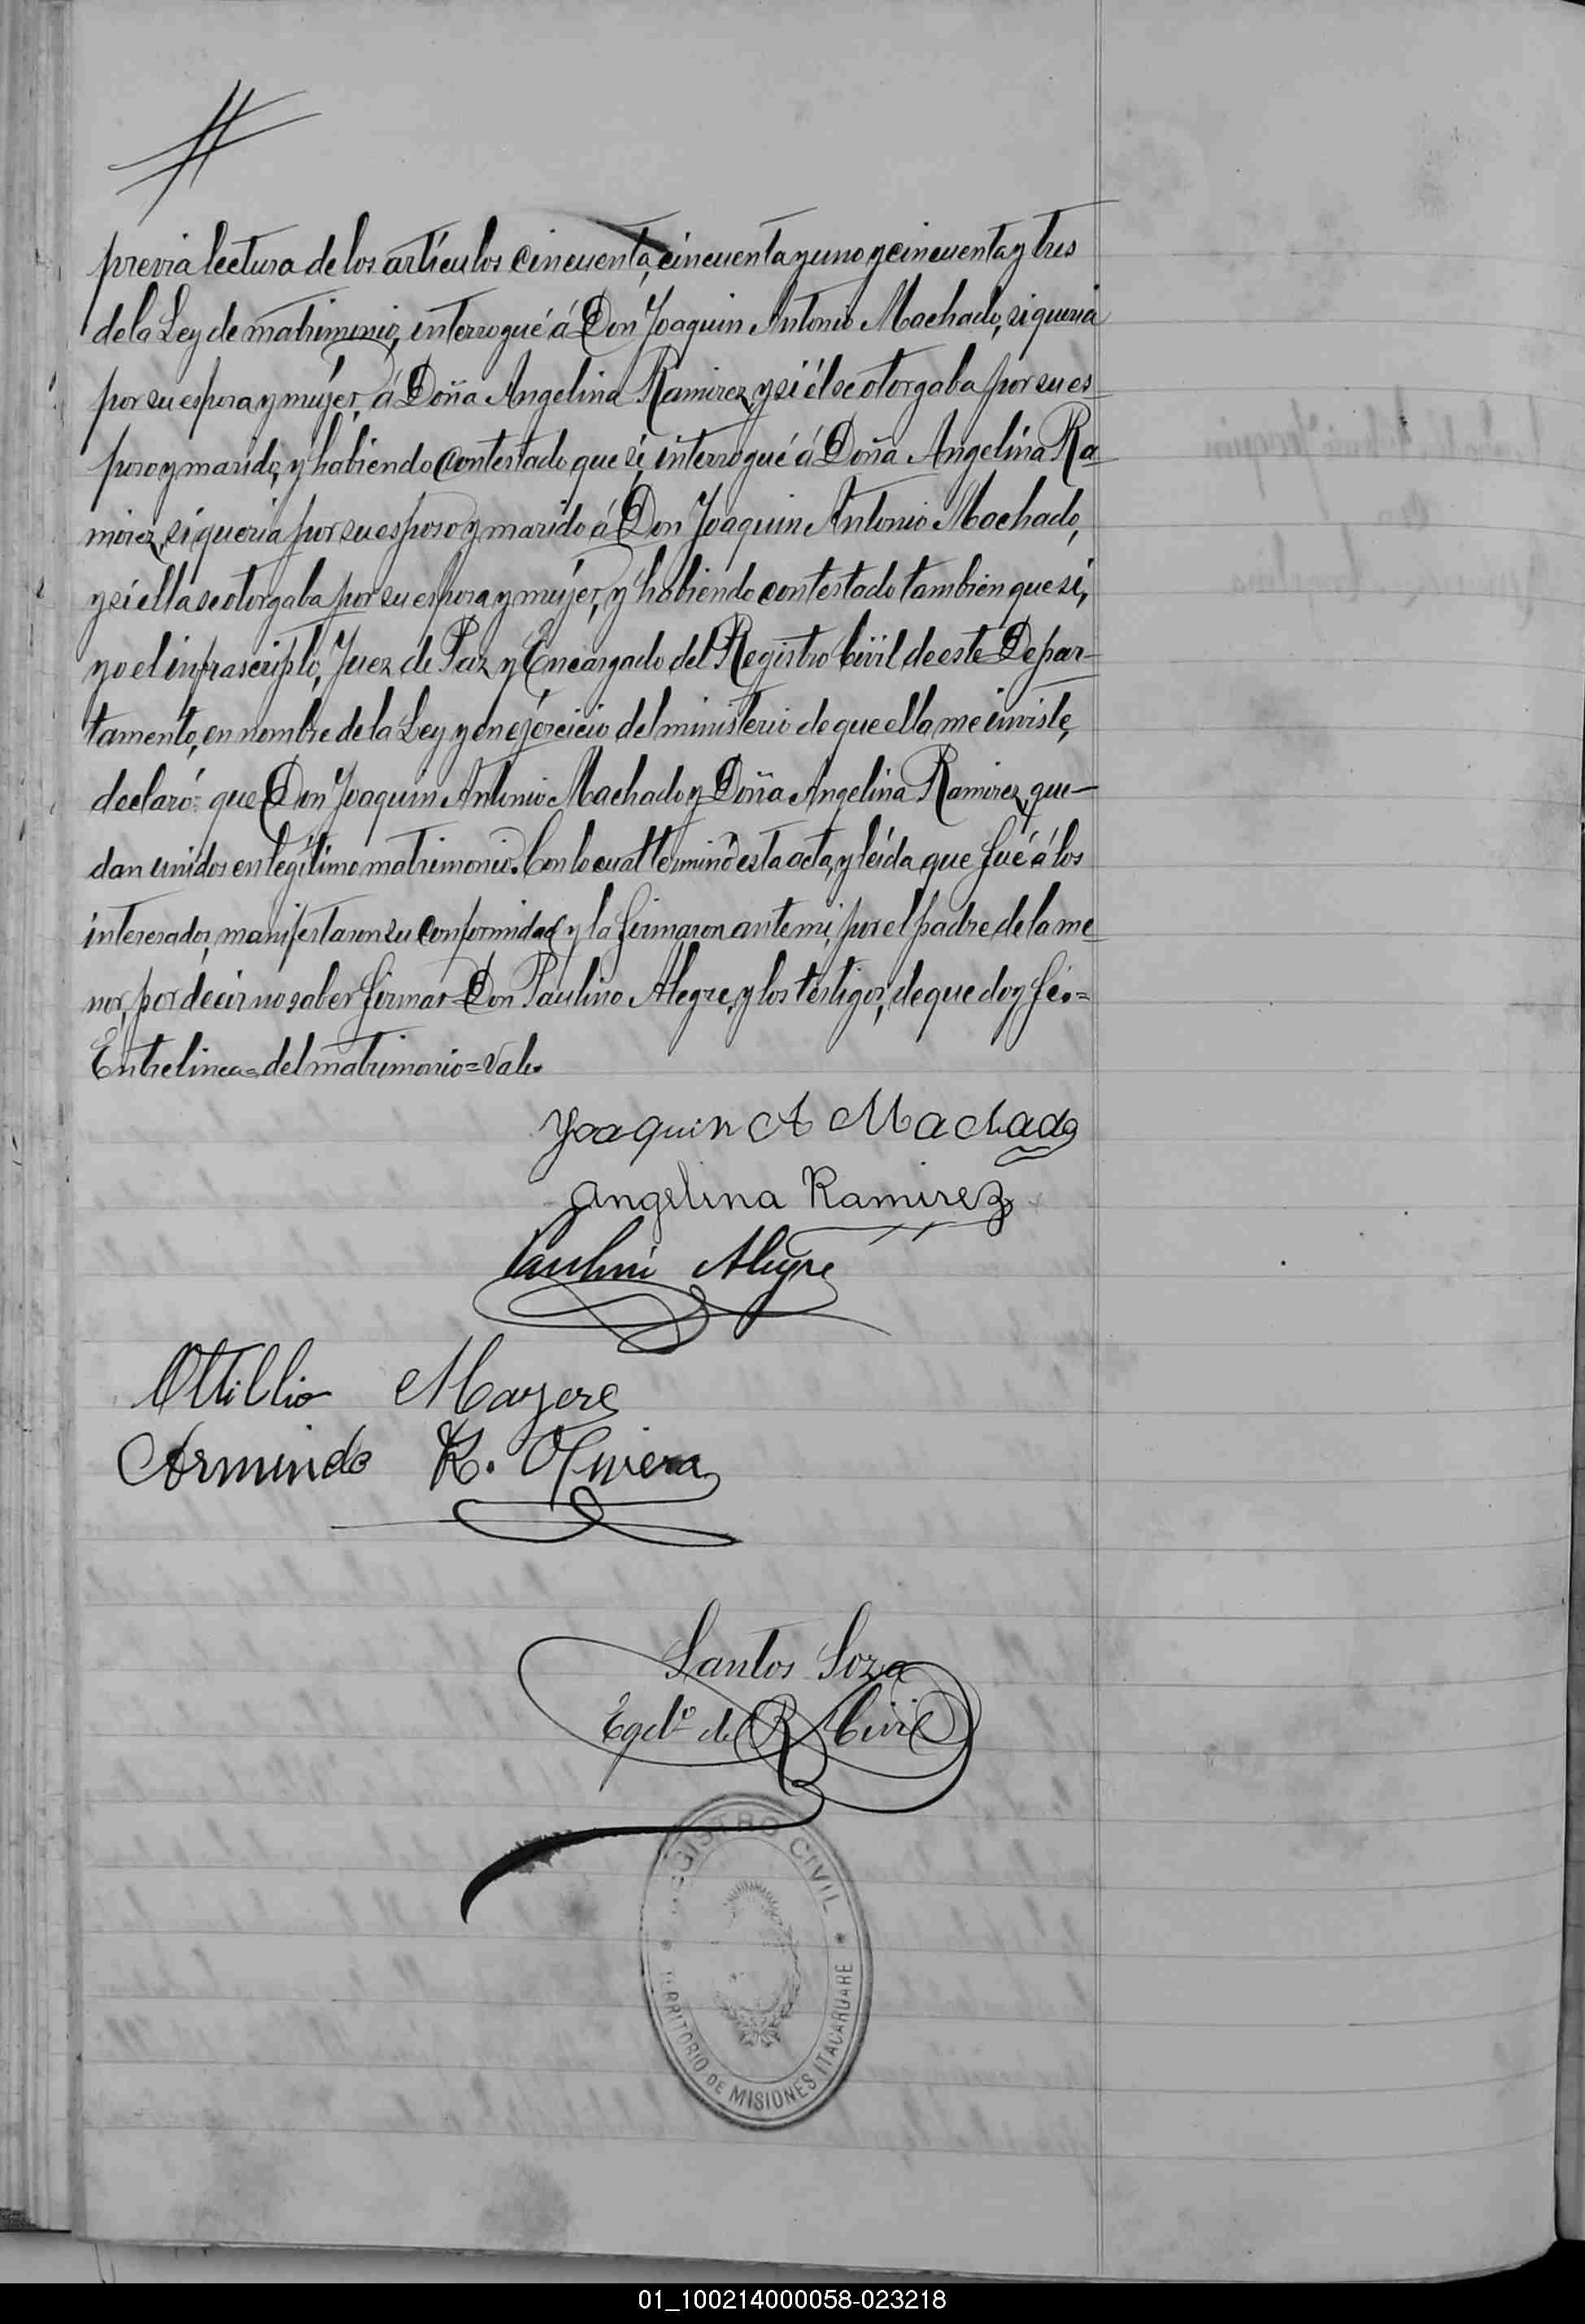 previa lectura de los artículos cincuenta, cincuenta y uno y cincuenta y tres
de la Ley de matrimonio, interrogué á Don Joaquin Antonio Machado, si queria
por su esposa y mujer, á Doña Angelina Ramirez, y si él se otorgaba por su es-
poso y marido, y habiendo contestado que si, interrogué á Doña Angelina Ra-
mirez, si queria por su esposo y marido á Don Joaquin Antonio Machado,
y si ella se otorgaba por su esposa y mujer, y habiendo contestado tambien que si,
yo el infrascripto, Juez de Paz y Encargado del Registro Civil de este Depar-
tamento, en nombre de la Ley y en ejercicio del ministerio de que ella me inviste,
declaró: que Don Joaquin Antonio Machado y Doña Angelina Ramirez, que-
dan unidos en legítimo matrimonio. Con lo cual terminó esta acta, y leída que fué á los
interesados, manifestaron su conformidad y la firmaron ante mi, por el padre de la me-
nor, por decir no saber firmar Don Paulino Alegre, y los testigos, de que doy fé.=
Entrelineas=del matrimonio=Vale.
Joaquin A Machado
Angelina Ramirez
Paulino Alegre
Ottillio
Armindo R. Oliviera
Santos Soza
Egdo de R Civil
REGISTRO CIVIL
TERRITORIO DE MISIONES ITACARUARE
01_100214000058-023218